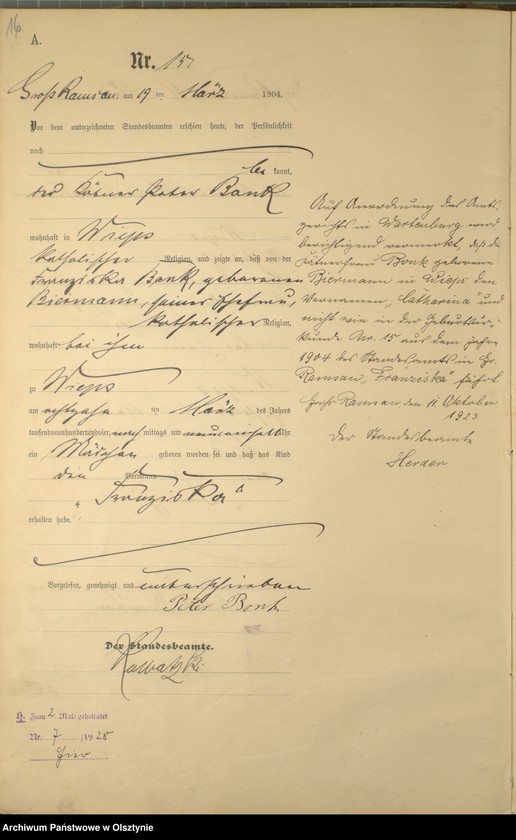 16.
A.
Nr. 15.
Groß Ramsau, am 19 ten März 1904.
Vor dem unterzeichneten Standesbeamten erschien heute, der Persönlichkeit
nach
be kannt,
der Kätner Peter Bonk
wohnhaft in Wieps
katholischer Religion, und zeigte an, daß von der
Franziska Bonk, geborenen
Biermann, seiner Ehefrau,
katholischer Religion,
wohnhaft bei ihm
zu Wieps
am achtzehn ten März des Jahres
tausendneunhundertundvier, nach mittags um neuneinhalb Uhr
ein Mädchen geboren worden sei und daß das Kind
den Vornamen
„Franziska“
erhalten habe.
Vorgelesen, genehmigt und unterschrieben
Peter Bonk
Der Standesbeamte.
Kowatzki
Auf Anordnung des Amts-
gerichts in Wartenburg wird
berichtigend vermerkt, daß die
Kätnerfrau Bonk geborene
Biermann in Wieps den
Vornamen, Catharina und
nicht wie in der Geburtsur-
kunde Nr. 15 aus dem Jahre
1904 des Standesamts in Gr.
Ramsau, „Franziska“ führt.
Groß Ramsau, den 11. Oktober
1923
Der Standesbeamte
Herder
H. Zum 2 Male geheiratet
Nr. 7 /1928
hier
Archiwum Państwowe w Olsztynie